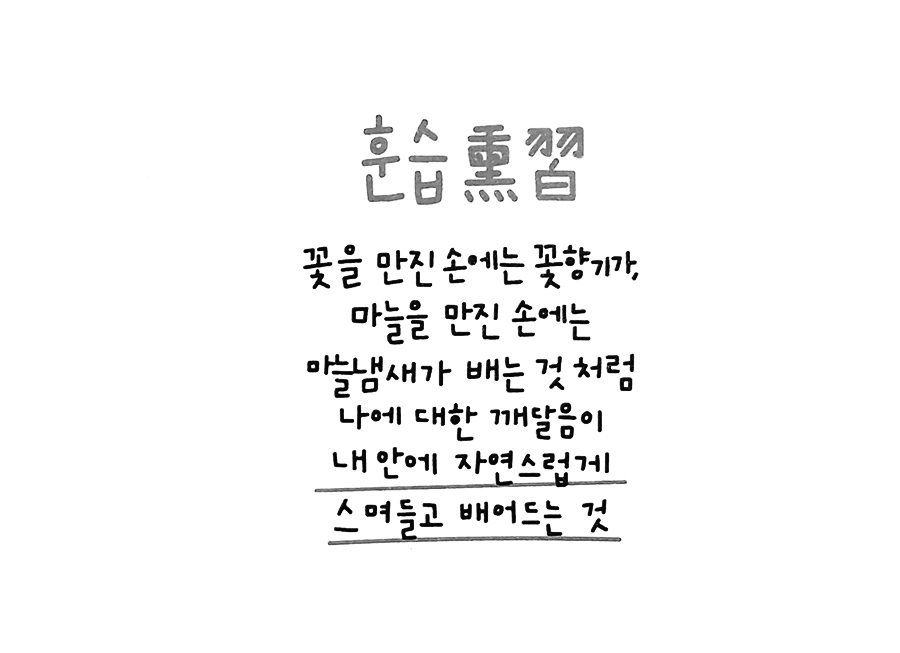 훈습 熏習
꽃을 만진 손에는 꽃향기가,
마늘을 만진 손에는
마늘냄새가 배는 것 처럼
나에 대한 깨달음이
내 안에 자연스럽게
스며들고 배어드는 것